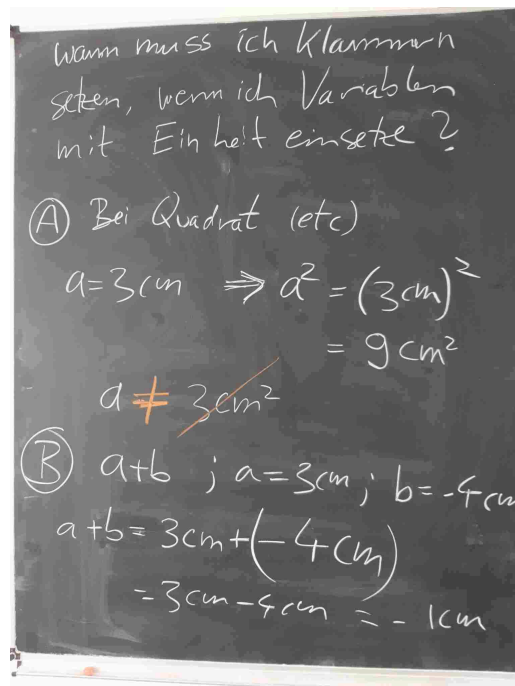 wann muss ich Klammern
setzen, wenn ich Variablen
mit Einheit einsetze?
Ⓐ Bei Quadrat (etc)
a=3cm ⇒ a² = (3cm)²
= 9cm²
a ≠ 3cm²
Ⓑ a+b ; a=3cm; b=-4cm
a+b= 3cm+(-4cm)
=3cm-4cm = -1cm